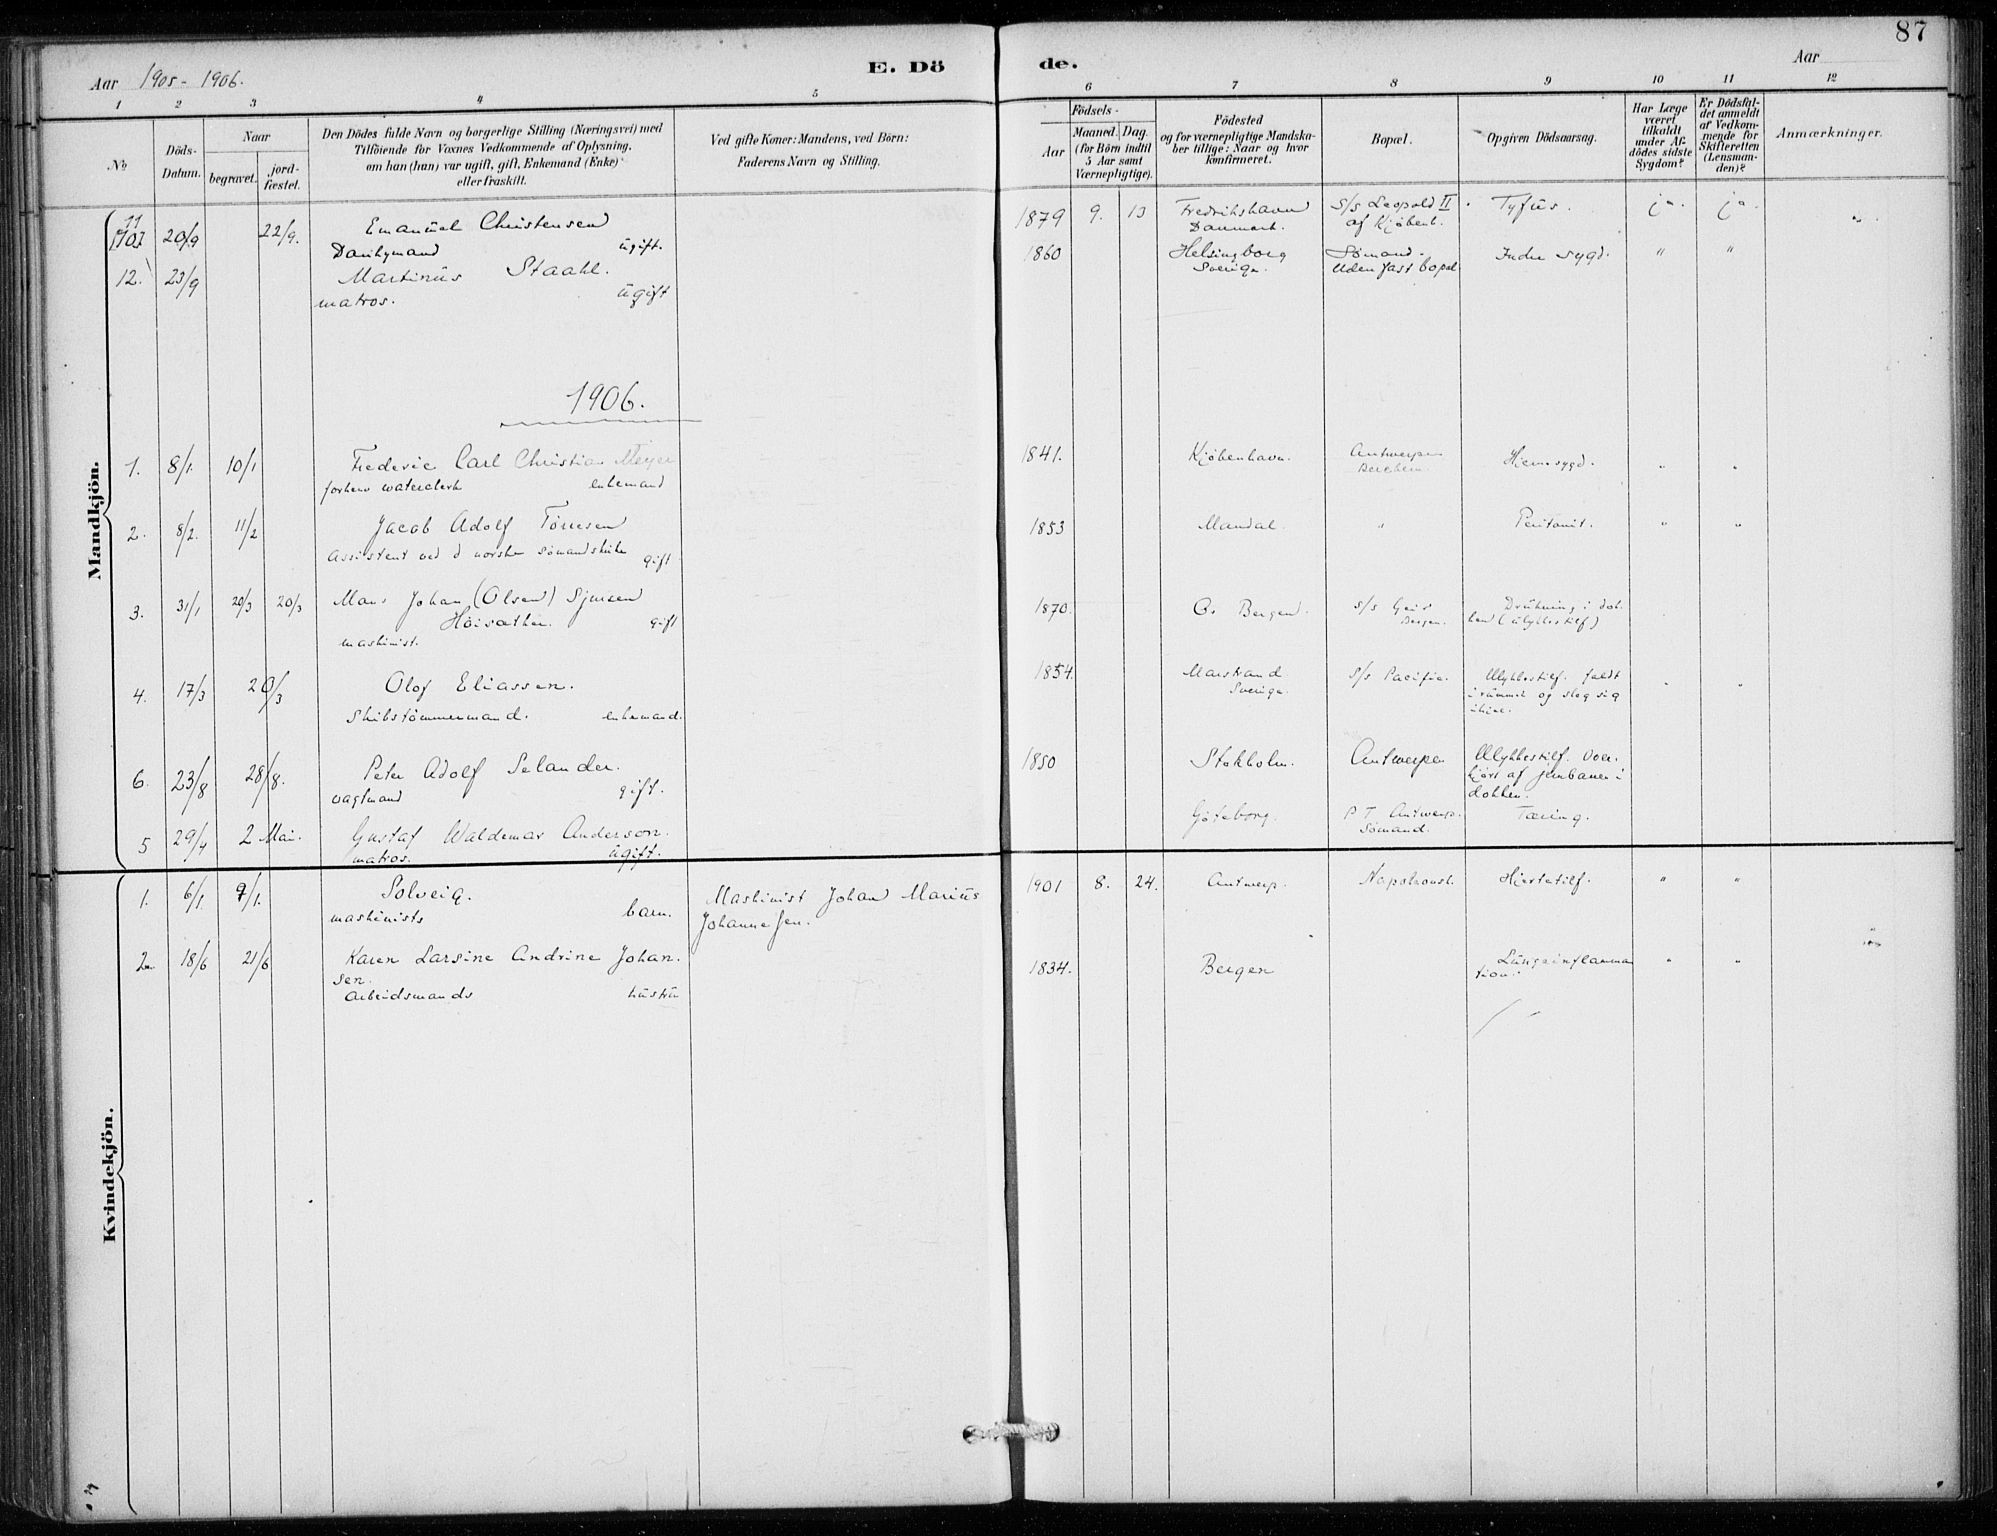 87
Aar 1905 - 1906.
E. Dö
de.
Aar
1 2 3 4 5
6 7 8 9 10 11 12
No
Döds-
Datum.
Naar
begravet.
jord-
fæstet.
Den Dödes fulde Navn og borgerlige Stilling (Næringsvei) med
Tilföiende for Voxnes Vedkommende af Oplysning,
om han (hun) var ugift, gift, Enkemand (Enke)
eller fraskilt.
Ved gifte Koner: Mandens, ved Börn:
Faderens Navn og Stilling.
Födsels-
Aar
Maaned. Dag.
(for Börn indtil
5 Aar samt
Værnepligtige).
Födested
og for værnepligtige Mandska-
ber tillige: Naar og hvor
konfirmeret.
Bopæl.
Opgiven Dödsaarsag.
Har Læge
været
tilkaldt
under Af-
dödes sidste
Sygdom?
Er Dödsfal-
det anmeldt
af Vedkom-
mende for
Skifteretten
(Lensman-
den)?
Anmærkninger.
Mandkjön.
11 20/9 22/9. Emanuel Christensen 1879 9. 13 Fredrikshavn S/S Leopold II Tyfus. ja. ja. "
Donkymand ugift. Danmark. af Kjøbenh.
12. 23/9 Martinus Staahl. 1860 Helsingborg Sømand. Indre sygd. " "
matros. ugift Sverige. uden fast bopæl
1906.
1. 8/1. 10/1 Frederic Carl Christian Meyer 1841. Kjøbenhavn. Antwerpen Hjernesygd. " "
forhen waterclerk enkemand Berchem.
2. 8/2. 11/2 Jacob Adolf Tönnesen 1853 Mandal. " Peritonit. " "
Assistent ved d norske sømandskirke gift
3. 31/1 20/3 20/3 Mons Johan (Olsen) Sjursen 1870. Os Bergen. S/S Geir Drukning i dok-
Höisæther. gift Bergen. ken (ulykkestilf)
maskinist.
4. 17/3 20/3 Olof Eliassen. 1854. Marstrand S/S Pacific. Ulykkestilf. faldt " "
Skibstömmermand. enkemand. Sverige. i rummet og slog sig
ihjel.
6. 23/8 28/8. Peter Adolf Selander. 1850 Stokholm. Antwerpen Ulykkestilf. Over-
vagtmand gift. kjört af jernbanen i
dokken.
5 29/4 2 Mai. Gustaf Waldemar Anderson. Göteborg. P T Antwerp. Tæring.
matros. ugift. Sømand.
Kvindekjön.
1. 6/1. 9/1. Solveig. Maskinist Johan Marius 1901 8. 24. Antwerp. Napoleonst. Hjertetilf. " "
maskinists barn. Johannesen.
2. 18/6 21/6 Karen Larsine Andrine Johan- 1834. Bergen Lungeinflamma " "
sen. tion.
Arbeidsmands hustru